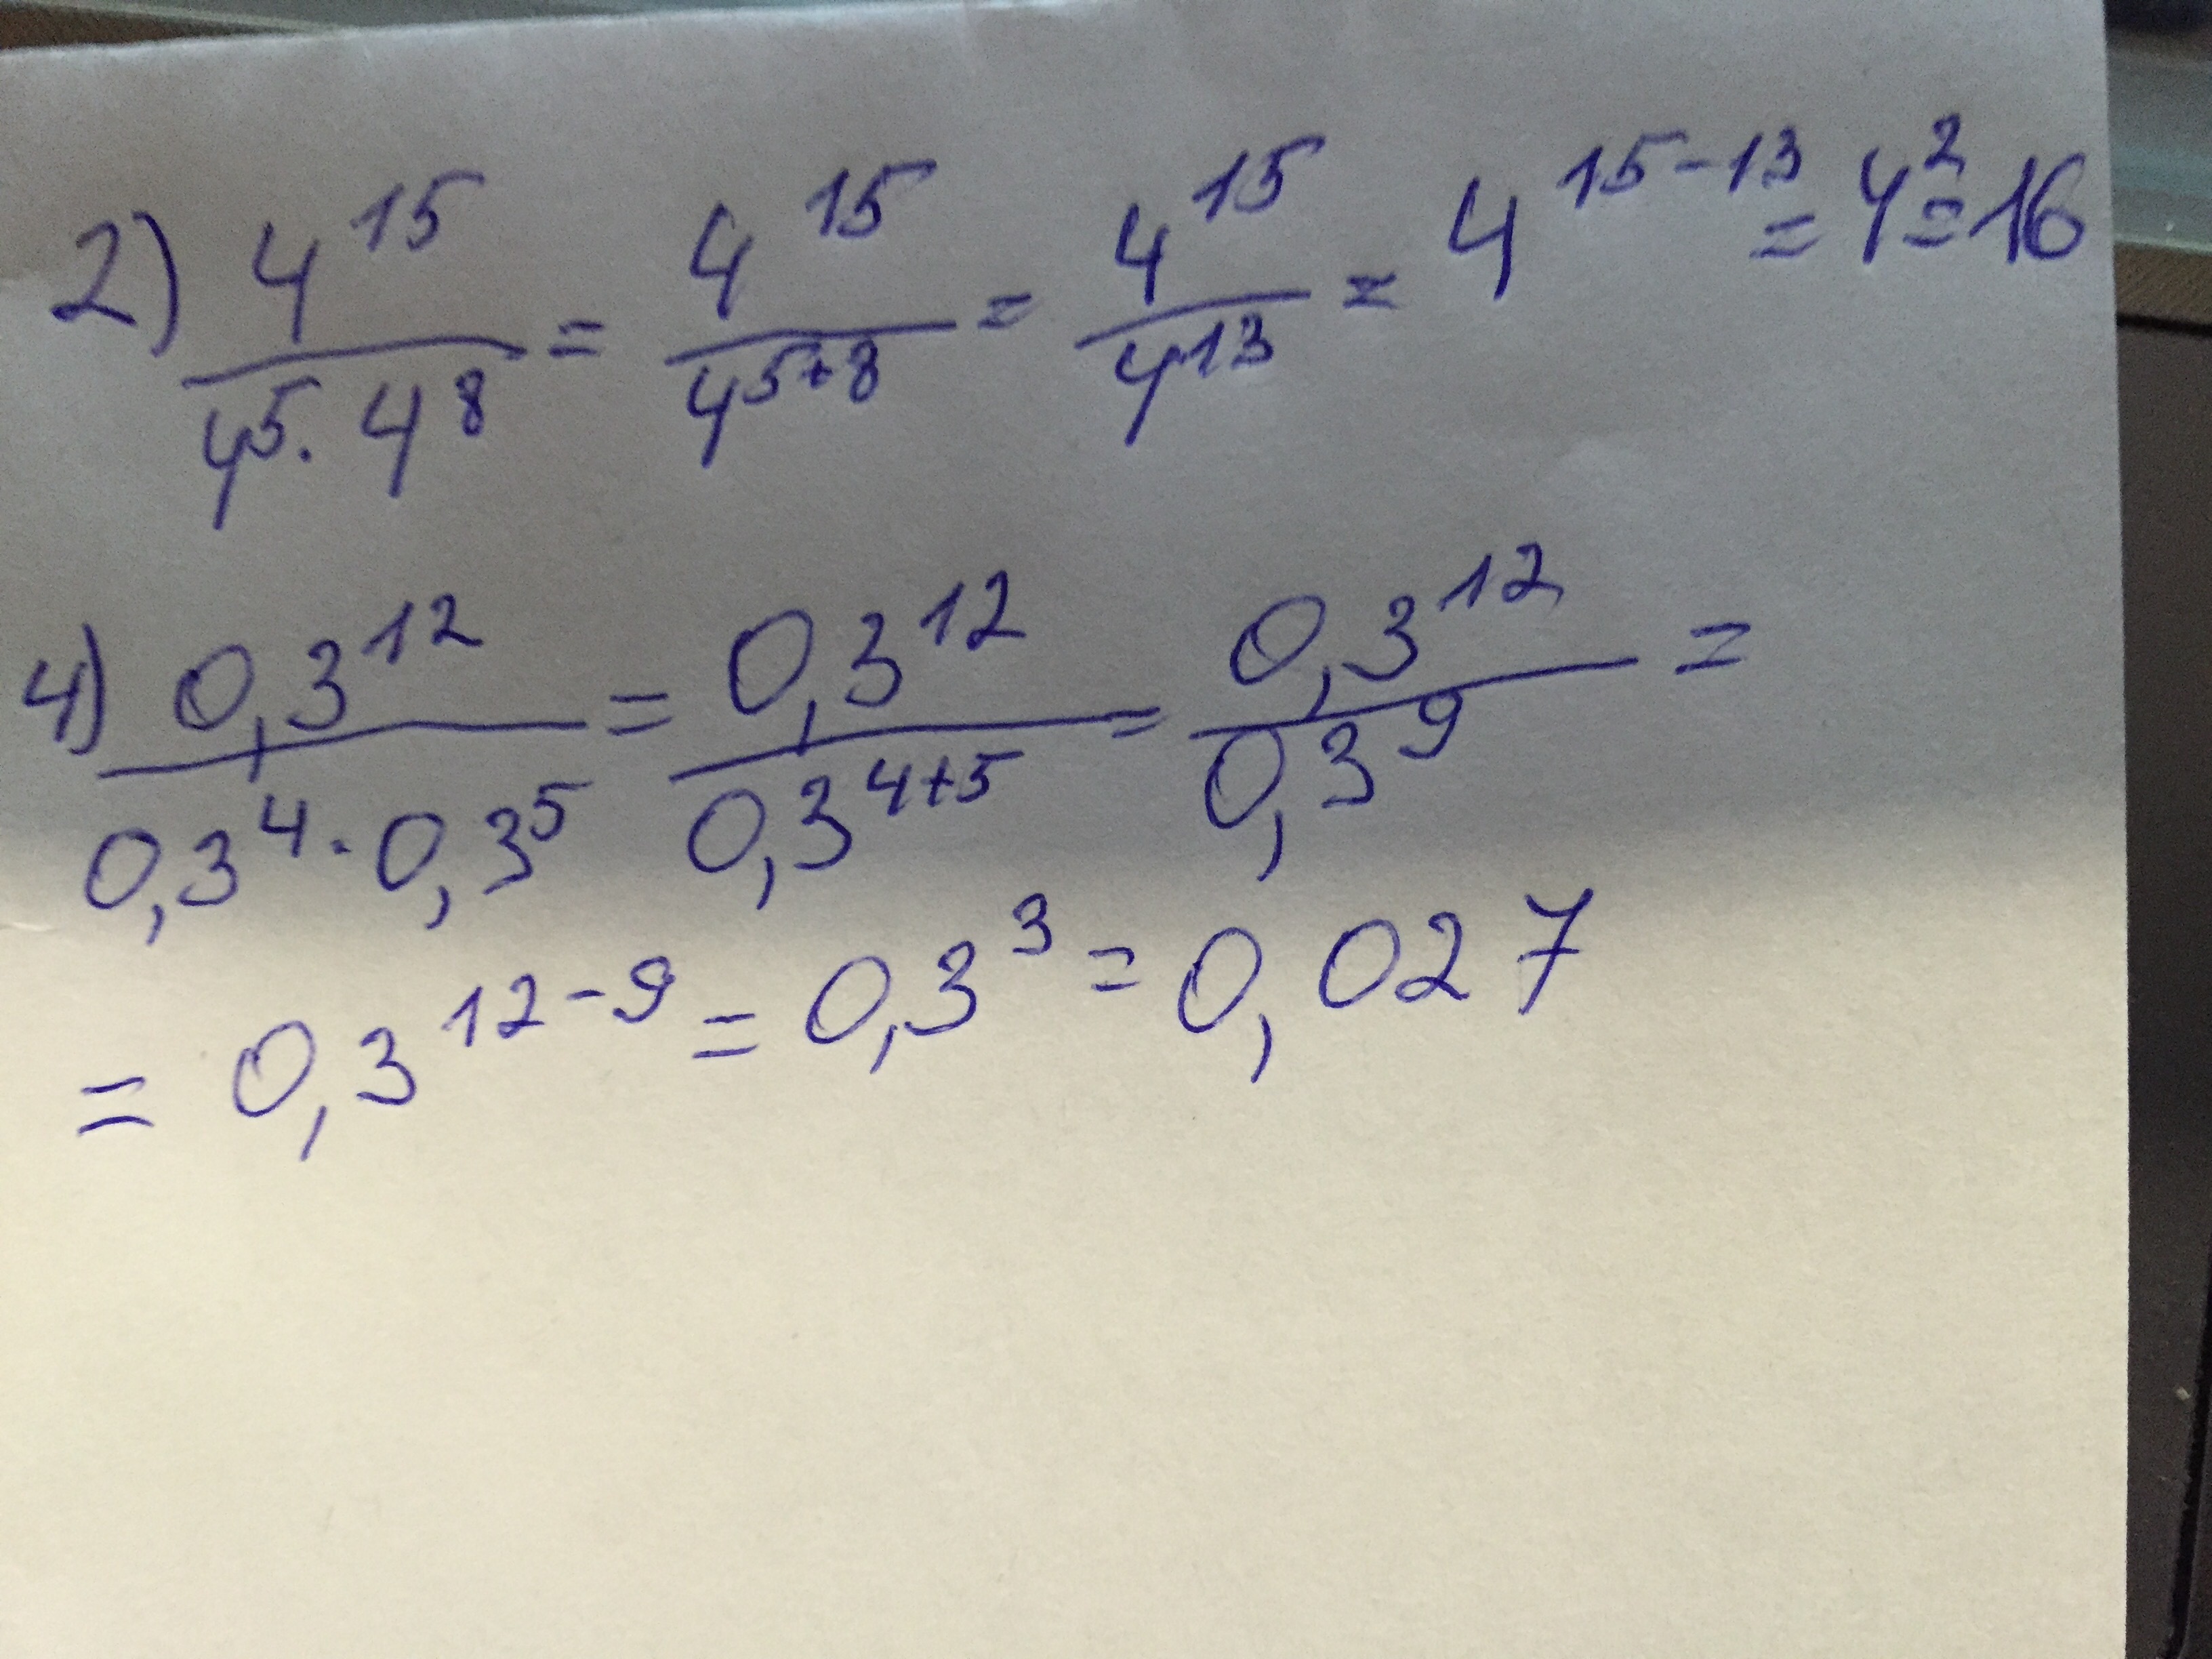 2) 4^15 / (4^5 · 4^8) = 4^15 / 4^(5+8) = 4^15 / 4^13 = 4^(15-13) = 4^2 = 16
4) 0,3^12 / (0,3^4 · 0,3^5) = 0,3^12 / 0,3^(4+5) = 0,3^12 / 0,3^9 =
= 0,3^(12-9) = 0,3^3 = 0,027